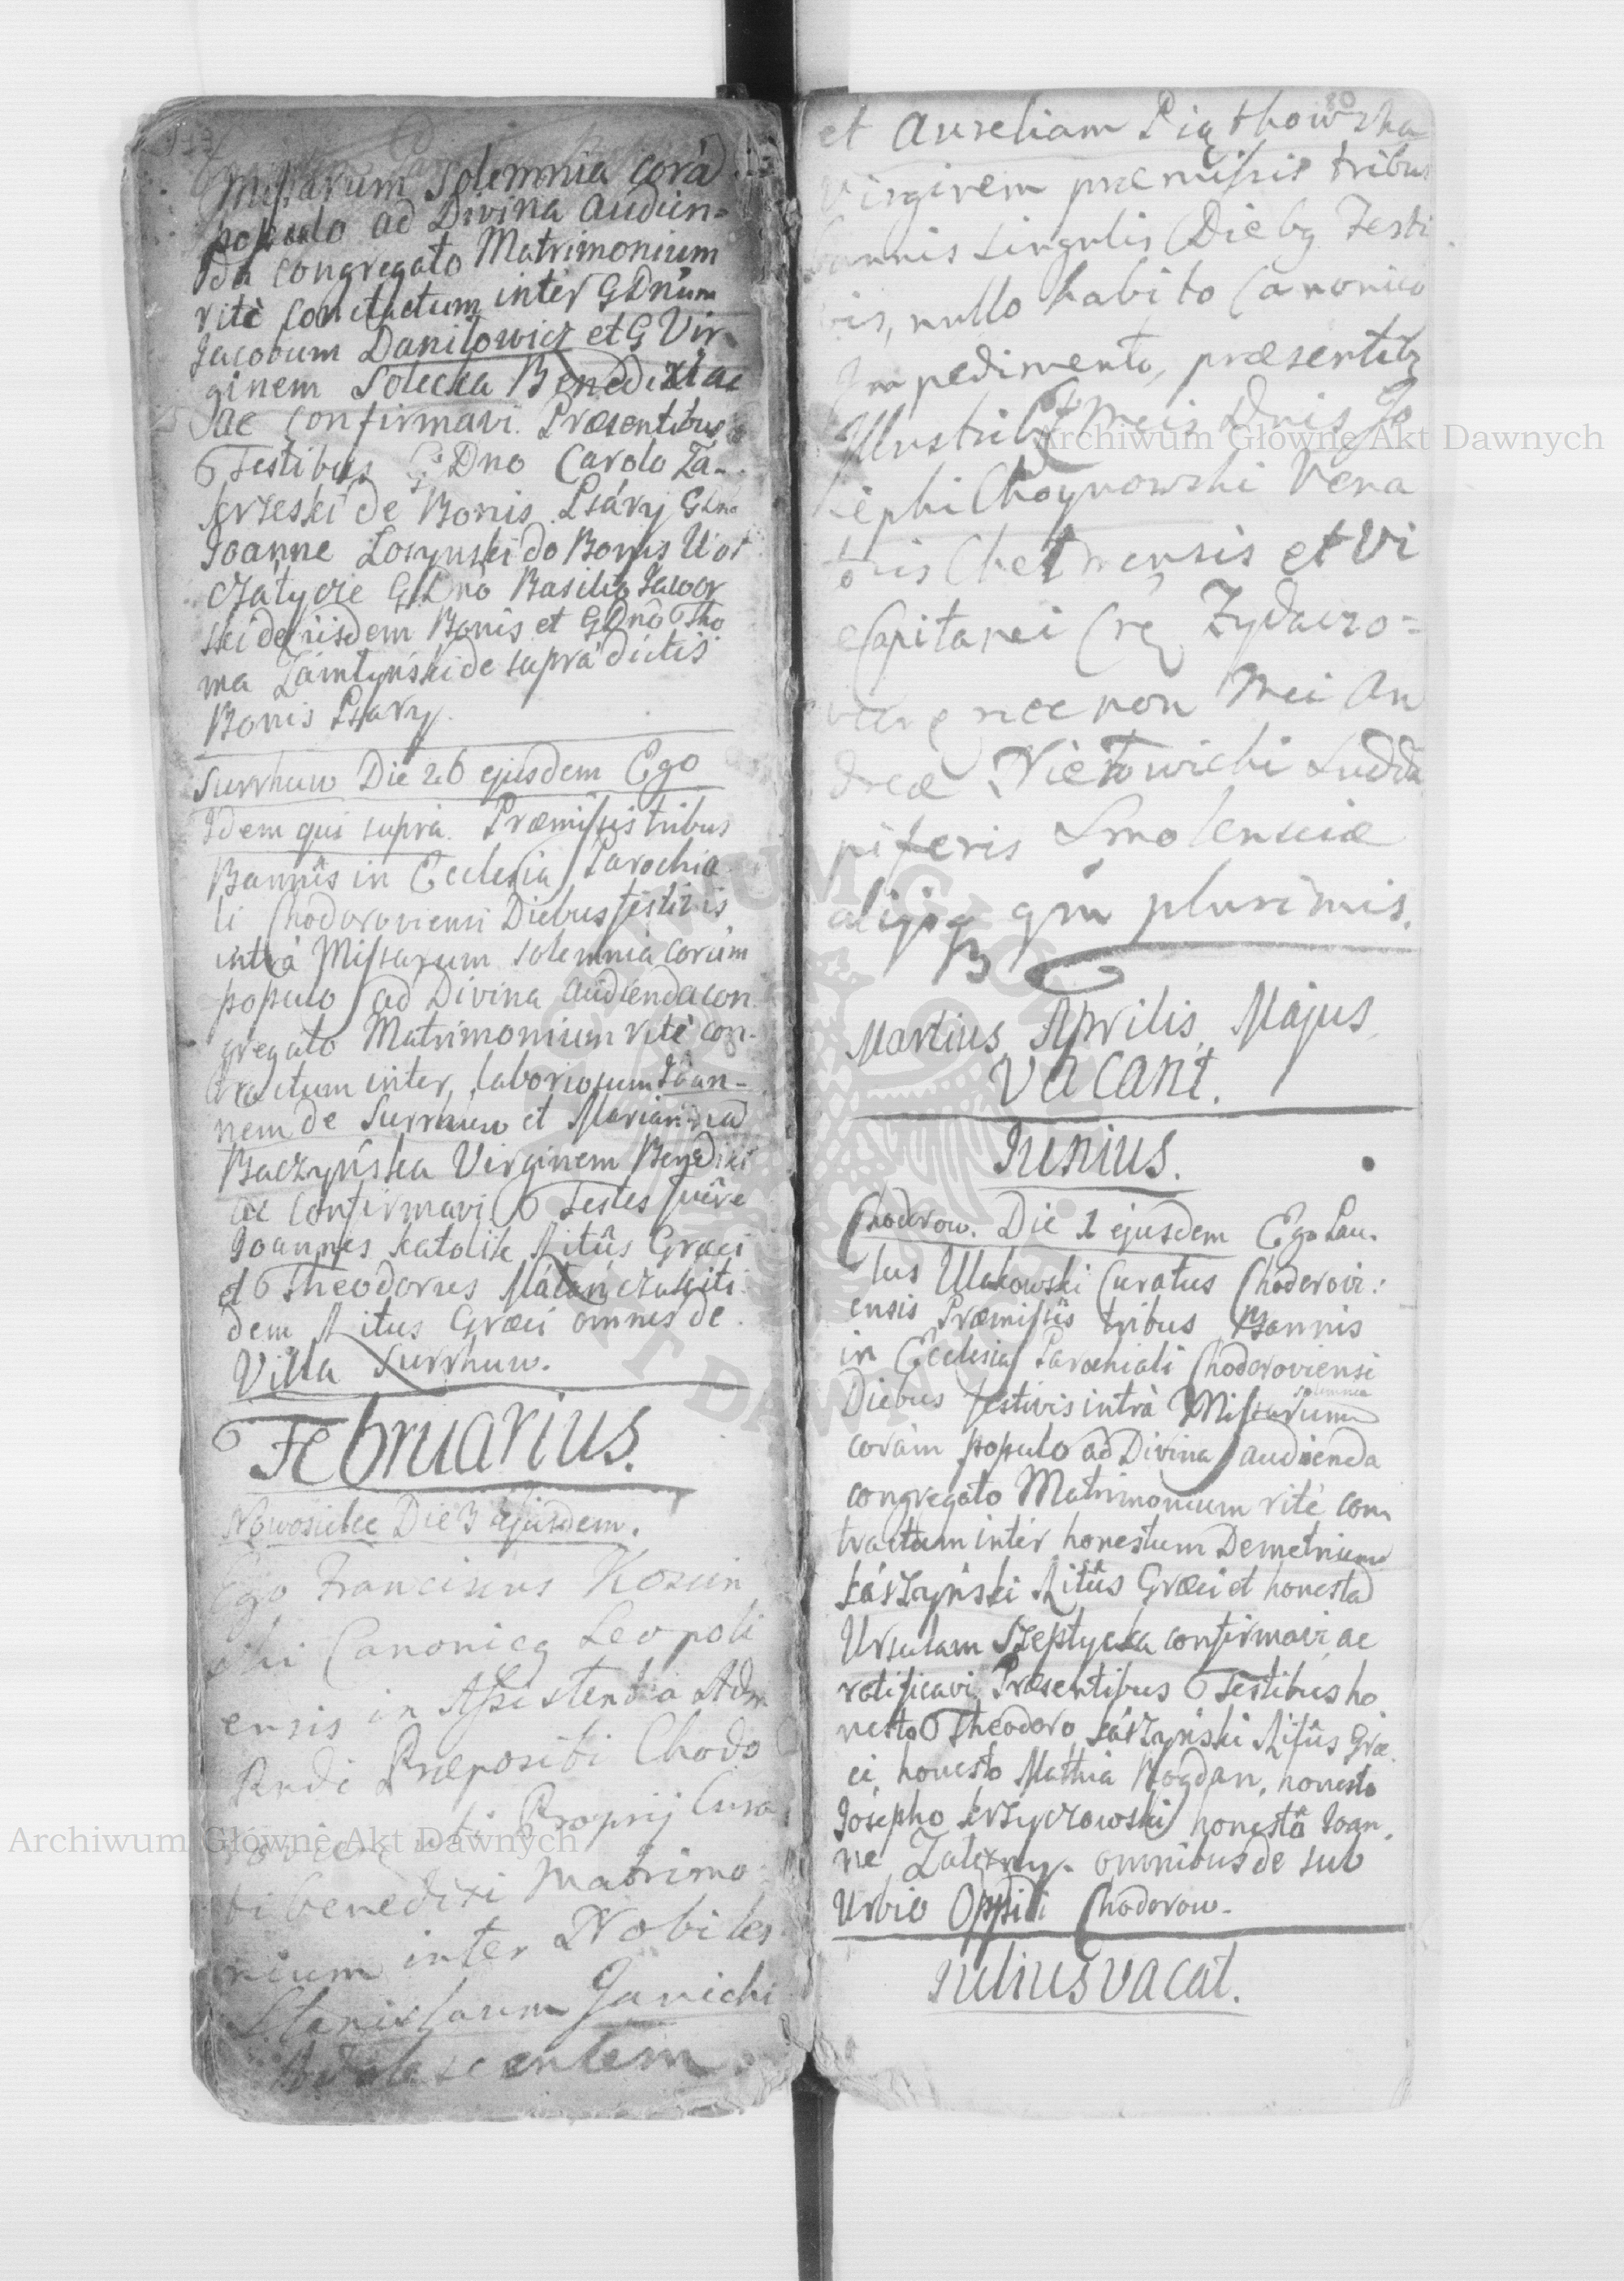 Missarum Solemnia corã
populo ad Divina Audien=
da congregato Matrimonium
ritè contractum inter GDnum
Jacobum Danilowicz et G Vir
ginem Solecka Benedixi ac
ac confirmavi. Præsentibus
Testibus G Dno Carolo Za-
krzeski de Bonis Psáry GDno
Joanne Losynski de Bonis
czátycze GDno Basilio Jawor
ski de iisdem Bonis et GDno Tho
ma Zámtyński de supra dictis
Bonis Psary.
Surrhuw Die 26 ejusdem Ego
Idem qui suprà. Præmissis tribus
Bannis in Ecclesia Parochia
li Chodoroviensi Diebus festivis
intrà Missarum solemnia coràm
populo ad Divina audienda con
gregato Matrimonium ritè con-
tractum inter laboriosum Joan-
nem de Surrhuw et Mariannã
Baczyńska Virginem Benedixi
ac confirmavi Testes fuêre
Joannes Katolik Ritûs Græci
et Theodorus
dem Ritus Græci omnes de
Villa Surrhuw.
Februarius.
Nowosielce Die 3 ejusdem.
Ego Franciscus Kosin
ski Canonicq Leopoli
ensis in Assistentia Adm
Rndi Præpositi Chodo
roviensis uti Proprij Cura
ti benedixi Matrimo
nium inter Nobiles
Stanislaum Janicki
Adolescentem
80
et Aureliam Piąthowska
Virginem præmissis tribus
bannis singulis Diebq Festi
vis, nullo habito Canonico
Impedimento, præsentibq
Illustribq Meis Dnis Jo
sephi Choynowski Vena
toris Chelmensis et Vi
ce Capitanei Zydaczo=
nec non Mei An
dreæ Nietowicki Sudda
piferis Smolensciæ
alijsq qm plurimis.
Martius Aprilis, Majus,
Vacant.
Iunius.
Chodorow. Die 1 ejusdem Ego Pau-
lus Ulakowski Curatus Chodorovi:
ensis Præmissis tribus Bannis
in Ecclesia Parochiali Chodoroviensi
Diebus festivis intrà Missarum solemnia
coràm populo ad Divina audienda
congregato Matrimonium ritè con
tractum intèr honestum Demetrium
Kászyński Ritûs Græci et honestã
Ursulam Szeptycka confirmavi ac
ratificavi Præsentibus Testibus ho
nesto Theodoro Kászyński Ritûs Græ
ci, honesto Mathia Bogdan, honesto
Josepho Krzyczowski honestô Joan-
ne Zalezny. omnibus de sub
Urbio Oppidi Chodorow.
Iulius vacat.
Archiwum Główne Akt Dawnych
Archiwum Główne Akt Dawnych